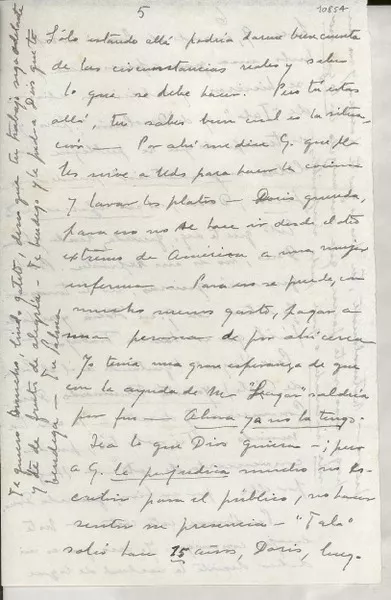 5
1085A
Sólo estando allá podría darme bien cuenta
de las circunstancias reales y saber
lo que se debe hacer. Pero tú estás
allá, tú sabes bien cual es la situa-
ción — Por ahí me dice G. que
les sirve a Uds para hacer la cocina
y lavar los platos — Doris querida,
para eso no se hace ir desde el otro
extremo de América a una mujer
enferma — Para eso se puede, con
mucho menos gasto, pagar a
una persona de por ahí cerca
Yo tenía una gran esperanza de que
con la ayuda de saldría
por fin — Alma ya no la tengo.
Sea lo que Dios quiera — ; pero
a G. le perjudica mucho no es-
cribir para el público, no hacer
sentir su presencia — "Tala"
salió hace 15 años, Doris,
Te quiero mucho, lindo gatito, deseo que tu trabajo siga adelante
y te dé frutos de alegría — Te bendigo y le pido a Dios que te
bendiga — Tu Palma